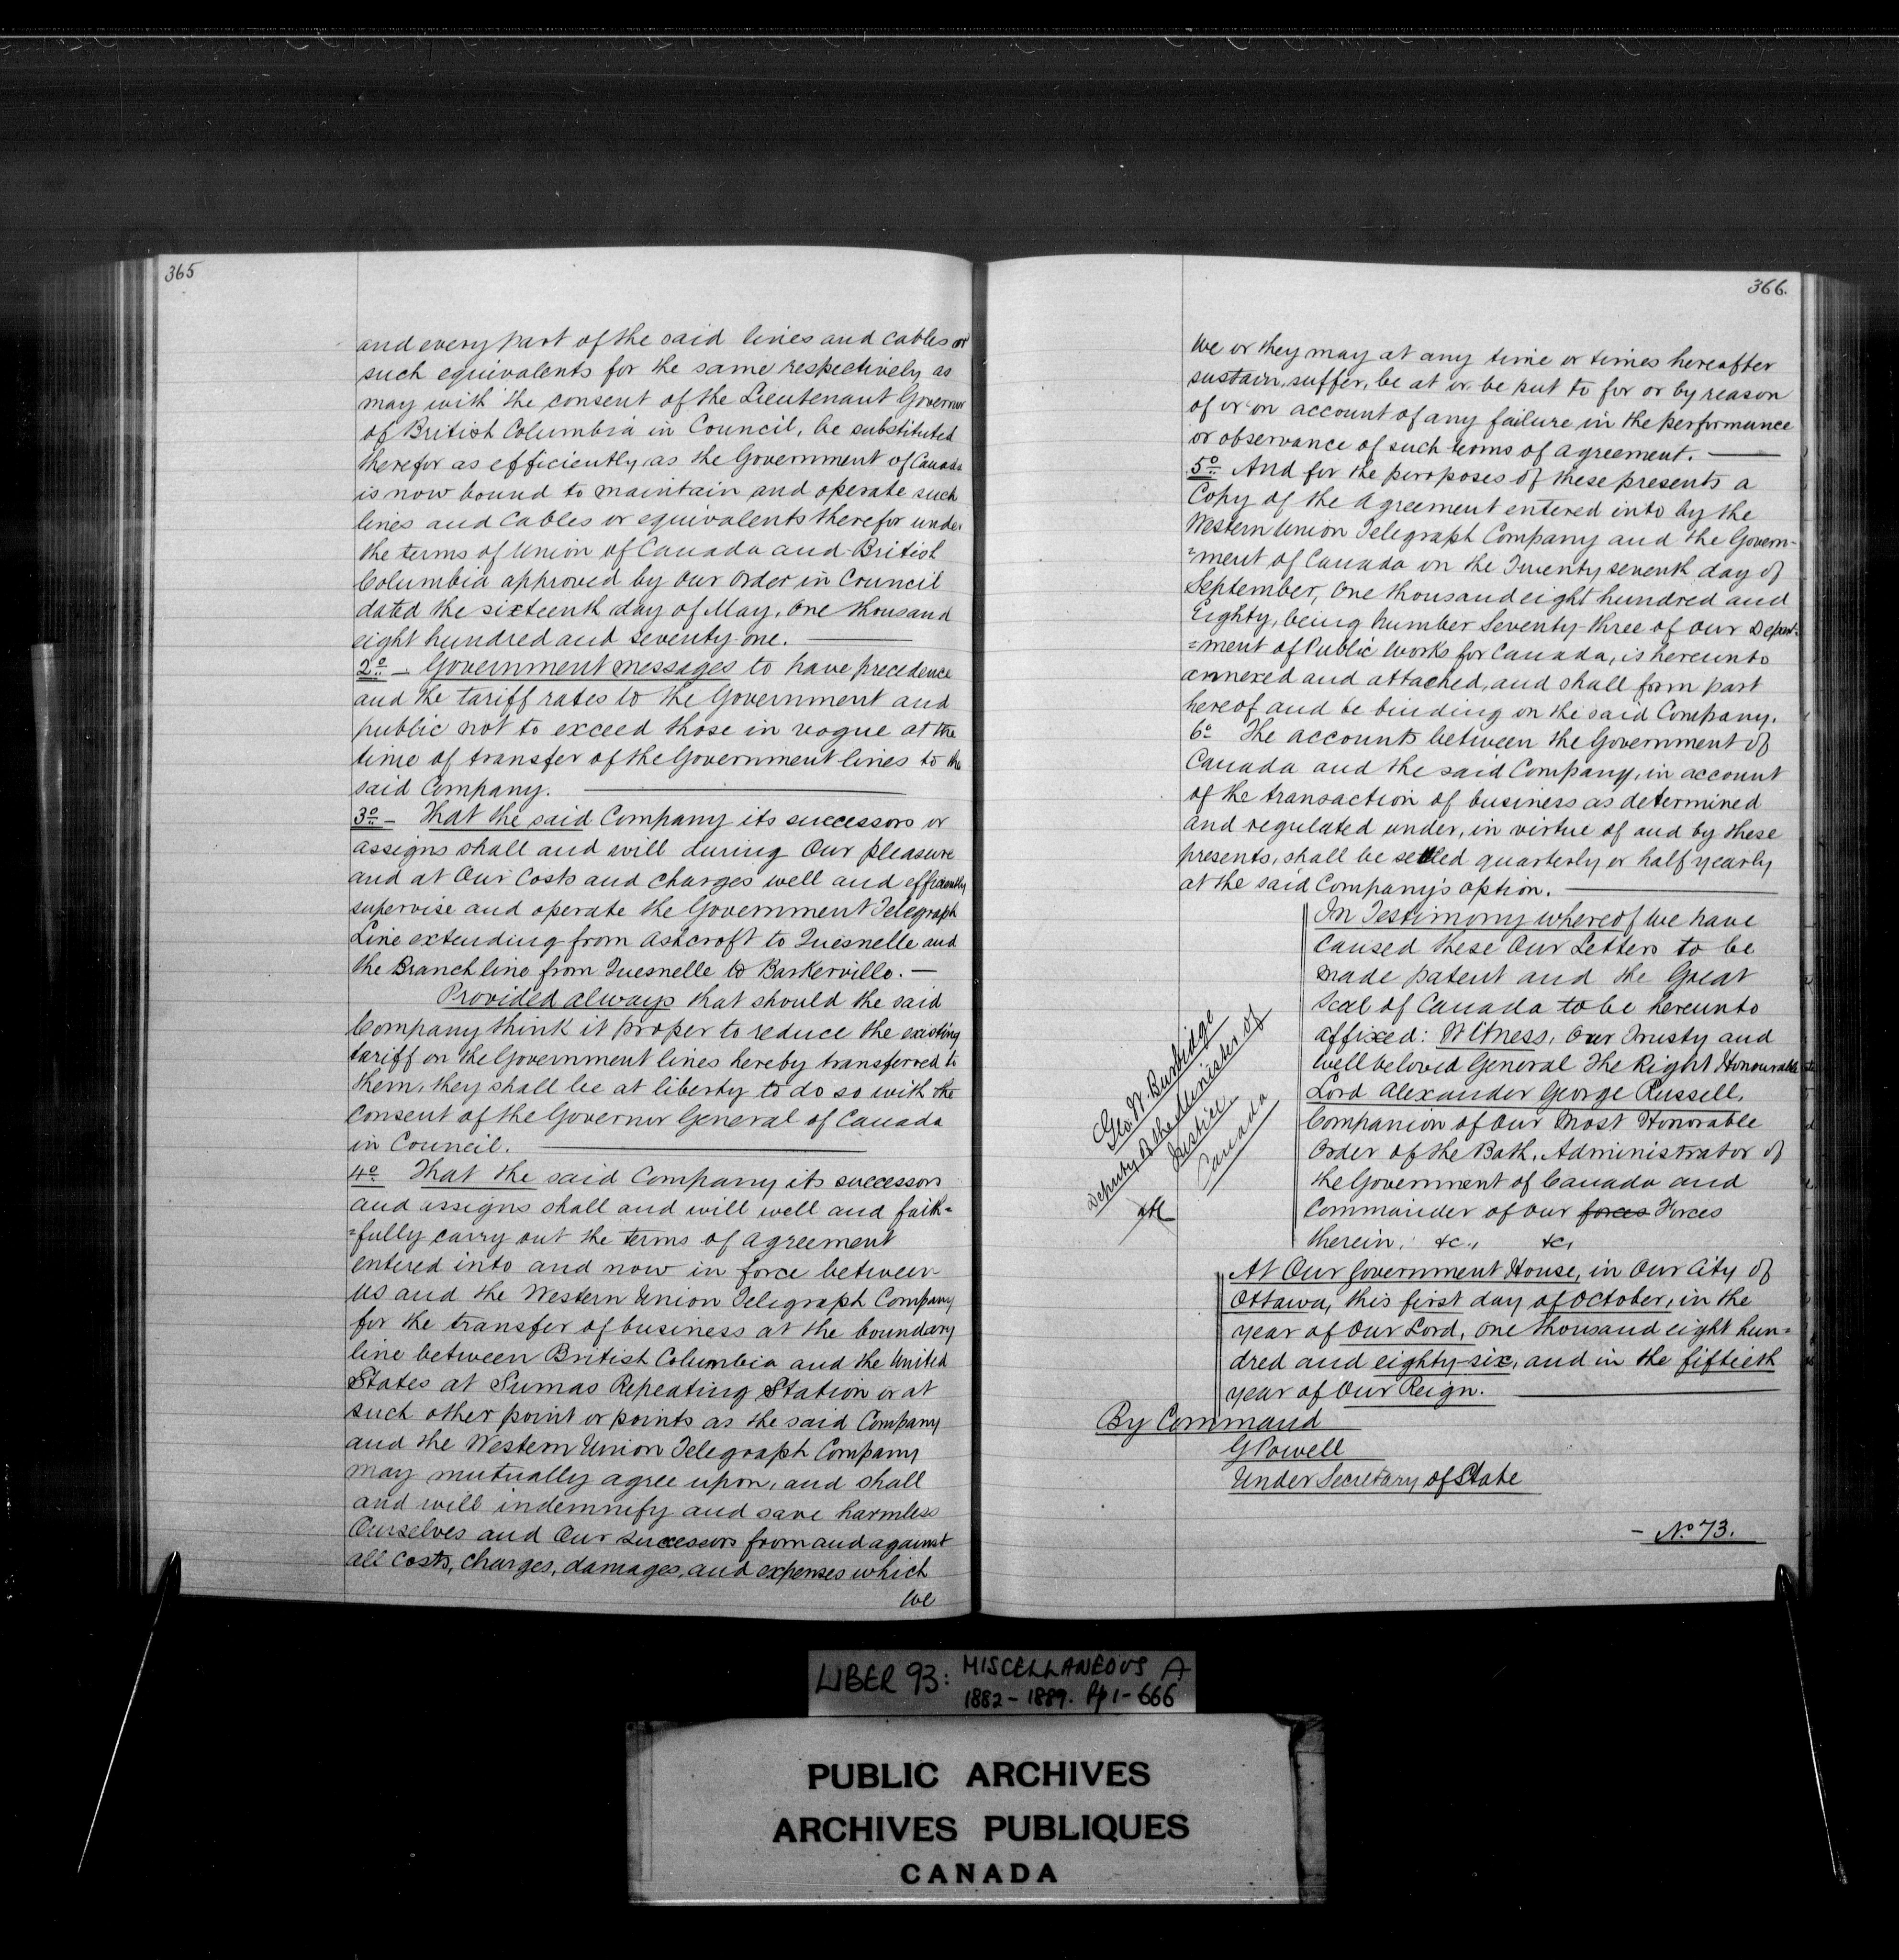 365
and every part of the said lines and cables or
such equivalents for the same respectively as
may with the consent of the Lieutenant Governor
of British Columbia in Council, be substituted
therefor as efficiently as the Government of Canada
is now bound to maintain and operate such
lines and Cables or equivalents therefor under
the terms of Union of Canada and British
Columbia approved by Our Order in Council
dated the sixteenth day of May, One thousand
eight hundred and seventy-one.
2º – Government messages to have precedence
and the tariff rates to the Government and
public not to exceed those in vogue at the
time of transfer of the Government lines to the
said Company.
3º – That the said Company its successors or
assigns shall and will during Our pleasure
and at Our Costs and charges well and efficiently
supervise and operate the Government Telegraph
Line extending from Ashcroft to Quesnelle and
the Branch line from Quesnelle to Barkerville. –
Provided always that should the said
Company think it proper to reduce the existing
tariff on the Government lines hereby transferred to
them, they shall be at liberty to do so with the
Consent of the Governor General of Canada
in Council.
4º That the said Company its successors
and assigns shall and will well and faith=
=fully carry out the terms of agreement
entered into and now in force between
us and the Western Union Telegraph Company
for the transfer of business at the boundary
line between British Columbia and the United
States at Sumas Repeating Station or at
such other point or points as the said Company
and the Western Union Telegraph Company
may mutually agree upon, and shall
and will indemnify and save harmless
Ourselves and Our successors from and against
all Costs, charges, damages, and expenses which
we
366.
We or they may at any time or times hereafter
sustain, suffer, be at or be put to for or by reason
of or on account of any failure in the performance
or observance of such terms of agreement.
5º And for the purposes of these presents a
Copy of the Agreement entered into by the
Western Union Telegraph Company and the Govern-
=ment of Canada on the Twenty seventh day of
September, One thousand eight hundred and
Eighty, being Number Seventy-three of Our Depart-
=ment of Public Works for Canada, is hereunto
annexed and attached, and shall form part
hereof and be binding on the said Company.
6º The accounts between the Government of
Canada and the said Company, in account
of the transaction of business as determined
and regulated under, in virtue of and by these
presents, shall be settled quarterly or half yearly
at the said Company's option.
In Testimony whereof We have
Caused these Our Letters to be
made patent and the Great
Seal of Canada to be hereunto
affixed: Witness, Our Trusty and
well beloved General The Right Honourable
Lord Alexander George Russell,
Companion of Our Most Honorable
Order of the Bath, Administrator of
the Government of Canada and
Commander of our forces Forces
therein, &c., &c,
Geo. W. Burbidge
Deputy of the Minister of
Justice
Canada
At Our Government House, in Our City of
Ottawa, this first day of October, in the
year of Our Lord, One thousand eight hun=
dred and eighty-six, and in the fiftieth
year of Our Reign.
By Command
G Powell
Under Secretary of State
– Nº 73.
LIBER 93: MISCELLANEOUS A
1882 – 1889. Pp 1 – 666
PUBLIC ARCHIVES
ARCHIVES PUBLIQUES
CANADA